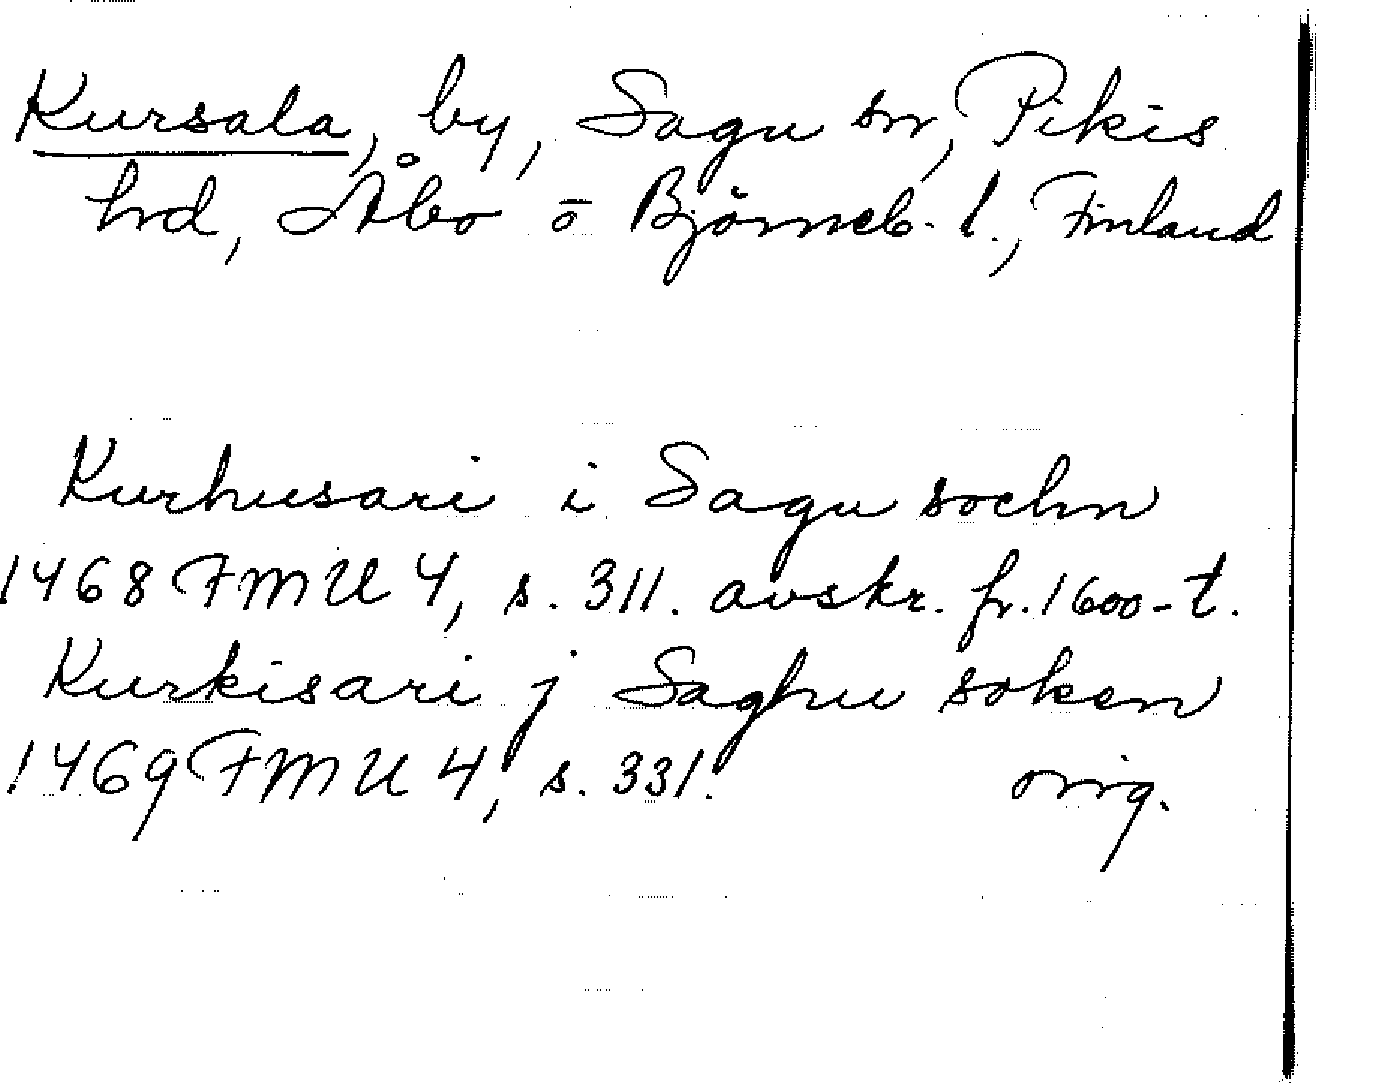 Kursala, by, Sagu sn, Pikis
hrd, Åbo o Björneb. l., Finland
Kurhusari i Sagu sochn
1468 FMU 4, s. 311. avskr. fr. 1600-t.
Kurkisari j Saghu soken
1469 FMU 4, s. 331. orig.